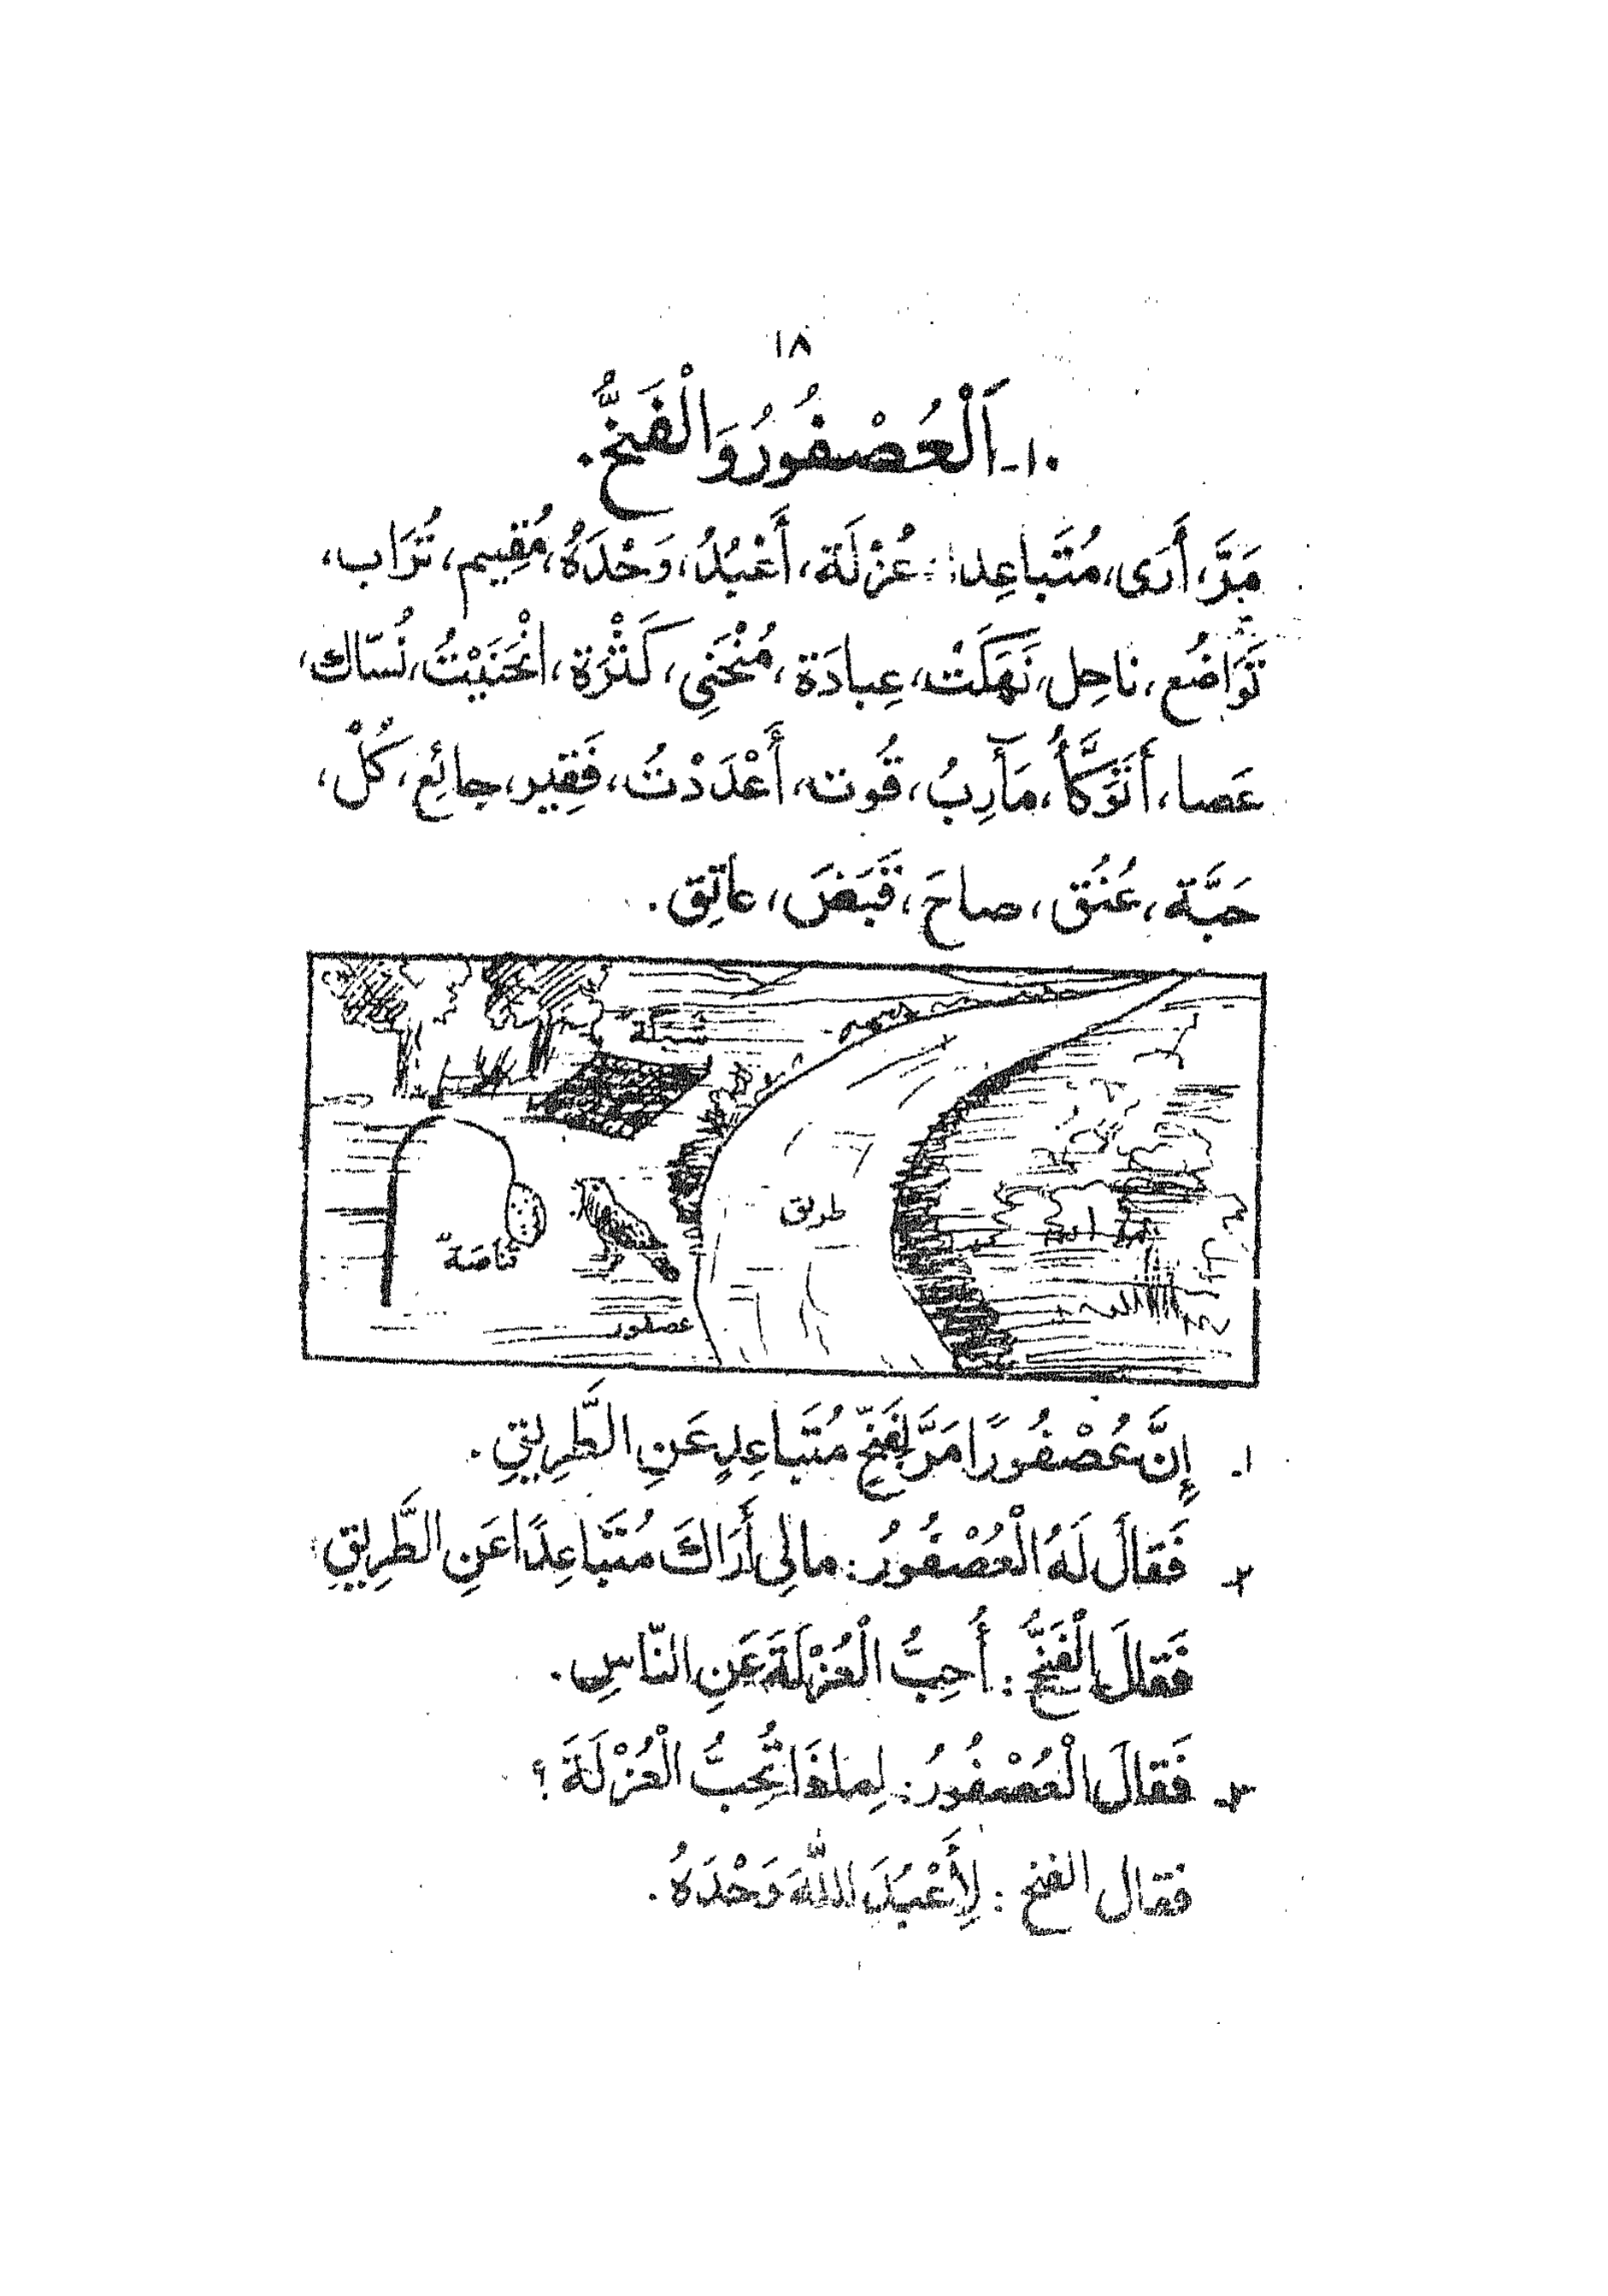 ١٨
١٠- اَلْعُصْفُورُ وَالْفَخُّ.
مَرَّ، أَرَى، مُتَباعِدا، عُزْلَة، أَعْبُدُ، وَحْدَهُ، مُقِيم، تُرَاب،
تَوَاضُع، ناحِل، نَهَكَتْ، عِبادَة، مُنْحَنِي، كَثْرَة، انْحَنَيْتُ، نُسّاك،
عَصا، أَتَوَكَّأُ، مَآرِبُ، قُوت، أَعْدَدْتُ، فَقِير، جائِع، كُلْ،
حَبَّة، عُنُق، صاحَ، قَبَضَ، عاتِق.
شبكة
طريق
عصفور
١. إِنَّ عُصْفُورًا مَرَّ بِفَخٍّ مُتَباعِدٍ عَنِ الطَّرِيقِ.
٢- فَقَالَ لَهُ الْعُصْفُورُ: مالِى أَرَاكَ مُتَبَاعِدًا عَنِ الطَّرِيقِ
فَقَالَ الْفَخُّ: أُحِبُّ الْعُزْلَةَ عَنِ النّاسِ.
٣- فَقَالَ الْعُصْفُورُ: لِماذَا تُحِبُّ الْعُزْلَةَ؟
فقال الفخ: لِأَعْبُدَ اللهَ وَحْدَهُ.